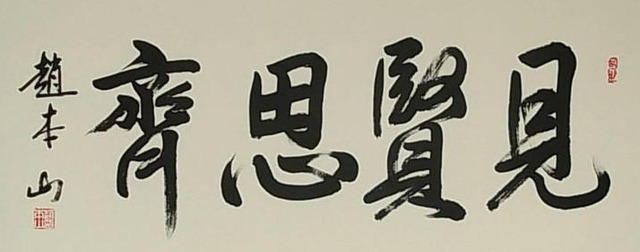 見賢思齊
趙本山